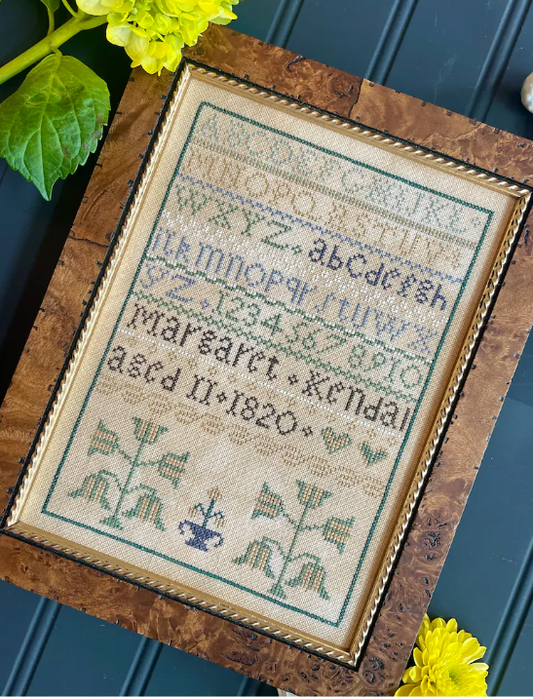 ABCDEFGHIKL
MNOPQRSTUV
WXYZ abcdefgh
ikmnopqrtuwx
yz 12345678910
Margaret Kendal
aged 11 1820